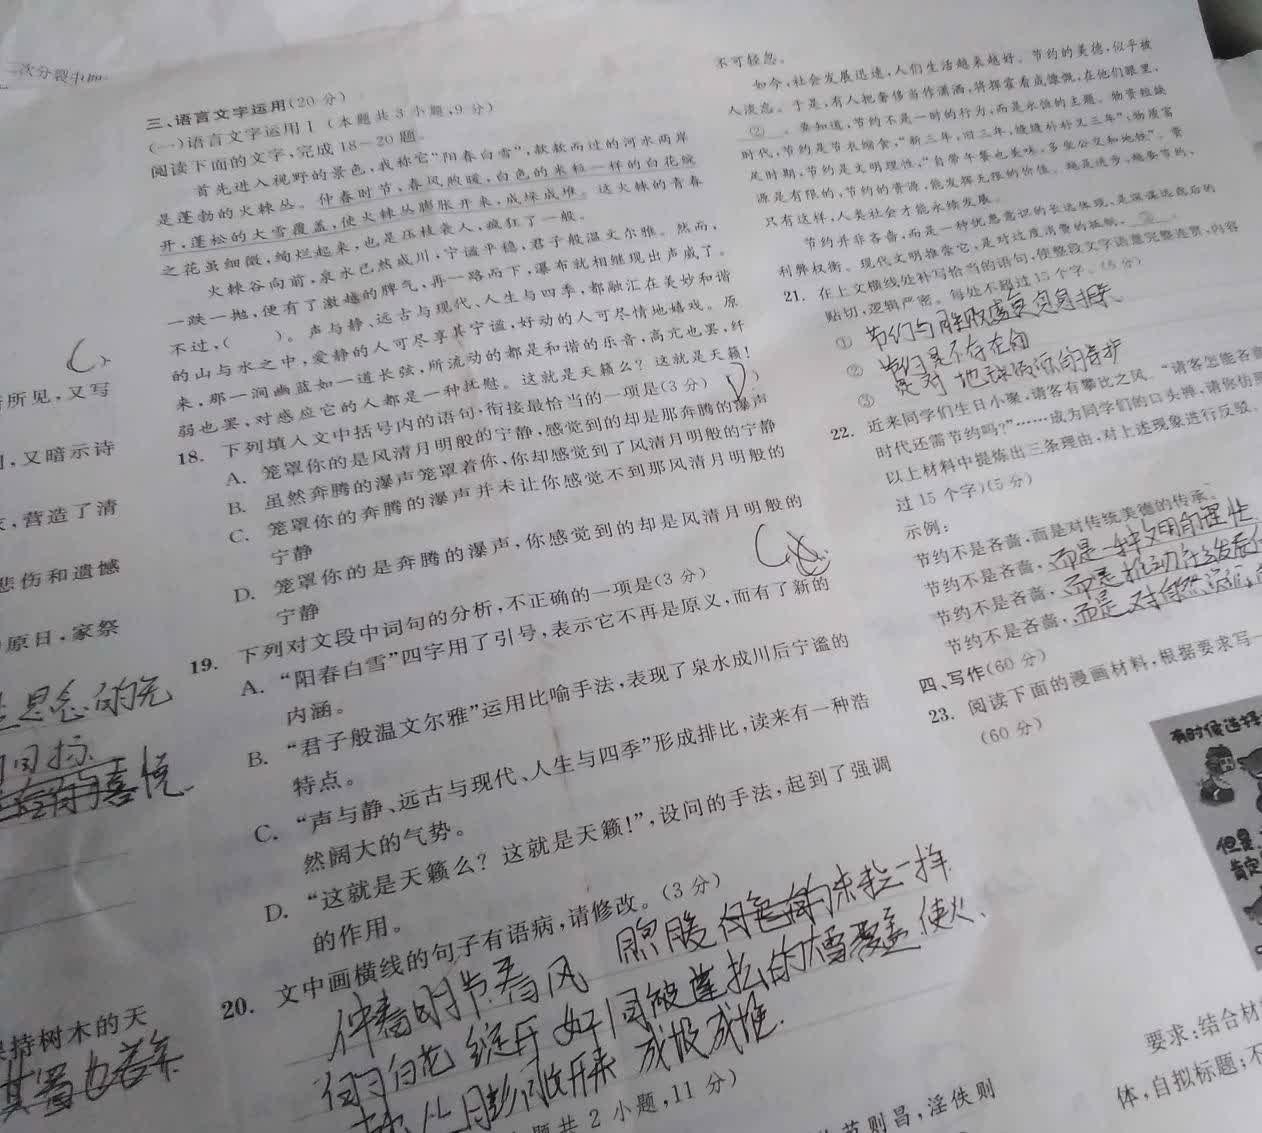 三、语言文字运用(20分)
(一)语言文字运用Ⅰ(本题共3小题,9分)
阅读下面的文字,完成18~20题。
首先进入视野的景色,我称它“阳春白雪”,款款而过的河水两岸
是蓬勃的火棘丛。仲春时节,春风煦暖,白色的米粒一样的白花绽
开,蓬松的大雪覆盖,使火棘丛膨胀开来,成垛成堆。这火棘的青春
之花虽细微,绚烂起来,也是压枝袭人,疯狂了一般。
火棘谷向前,泉水已然成川,宁谧平稳,君子般温文尔雅。然而,
一跌一抛,便有了激越的脾气,再一路而下,瀑布就相继现出声威了。
不过,( )。声与静、远古与现代、人生与四季,都融汇在美妙和谐
的山与水之中,爱静的人可尽享其宁谧,好动的人可尽情地嬉戏。原
来,那一涧幽蓝如一道长弦,所流动的都是和谐的乐音,高亢也罢,纤
弱也罢,对感应它的人都是一种抚慰。这就是天籁么?这就是天籁!
18. 下列填入文中括号内的语句,衔接最恰当的一项是(3分)( )
A. 笼罩你的是风清月明般的宁静,感觉到的却是那奔腾的瀑声
B. 虽然奔腾的瀑声笼罩着你,你却感觉到了风清月明般的宁静
C. 笼罩你的奔腾的瀑声并未让你感觉不到那风清月明般的
宁静
D. 笼罩你的是奔腾的瀑声,你感觉到的却是风清月明般的
宁静
19. 下列对文段中词句的分析,不正确的一项是(3分)
A. “阳春白雪”四字用了引号,表示它不再是原义,而有了新的
内涵。
B. “君子般温文尔雅”运用比喻手法,表现了泉水成川后宁谧的
特点。
C. “声与静、远古与现代、人生与四季”形成排比,读来有一种浩
然阔大的气势。
D. “这就是天籁么?这就是天籁!”,设问的手法,起到了强调
的作用。
20. 文中画横线的句子有语病,请修改。(3分)
仲春时节春风煦暖白色的米粒一样
的白花绽开好间被蓬松的大雪覆盖使火
棘丛膨胀开来成垛成堆.
题共2小题,11分)
节则昌,淫佚则
不可轻忽。
如今,社会发展迅速,人们生活越来越好。节约的美德,似乎被
人淡忘。于是,有人把奢侈当作潇洒,将挥霍看成慷慨,在他们眼里,
②。要知道,节约不是一时的行为,而是永恒的主题。物资短缺
时代,节约是节衣缩食,“新三年,旧三年,缝缝补补又三年”;物质富
足时期,节约是文明理性,“自带午餐也美味,多坐公交和地铁”。资
源是有限的,节约的资源,能发挥无限的价值。越是进步,越要节约,
只有这样,人类社会才能永续发展。
节约并非吝啬,而是一种忧患意识的长远体现,是深谋远虑后的
利弊权衡。现代文明推崇它,是对过度消费的抵制,③。
21. 在上文横线处补写恰当的语句,使整段文字语意完整连贯,内容
贴切,逻辑严密。每处不超过15个字。(6分)
① 节约与胜败盛衰息息相关
② 节约是不存在的
③ 是对地球资源的保护
22. 近来同学们生日小聚,请客有攀比之风。“请客怎能吝啬
时代还需节约吗?”……成为同学们的口头禅,请你仿照
以上材料中提炼出三条理由,对上述现象进行反驳。
过15个字)(5分)
示例:
节约不是吝啬,而是对传统美德的传承。
节约不是吝啬,而是一种文明的理性
节约不是吝啬,而是推动社会发展
节约不是吝啬,而是对自然资源
四、写作(60分)
23. 阅读下面的漫画材料,根据要求写一
(60分)
有时候选择
但是
肯定
要求:结合材
体,自拟标题;不
所见,又写
,又暗示诗
,营造了清
悲伤和遗憾
原日,家祭
思念的
喜悦.
持树木的天